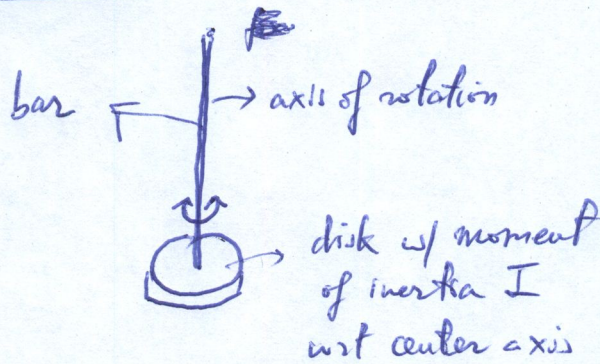 bar
axis of rotation
disk w/ moment
of inertia I
wrt center axis